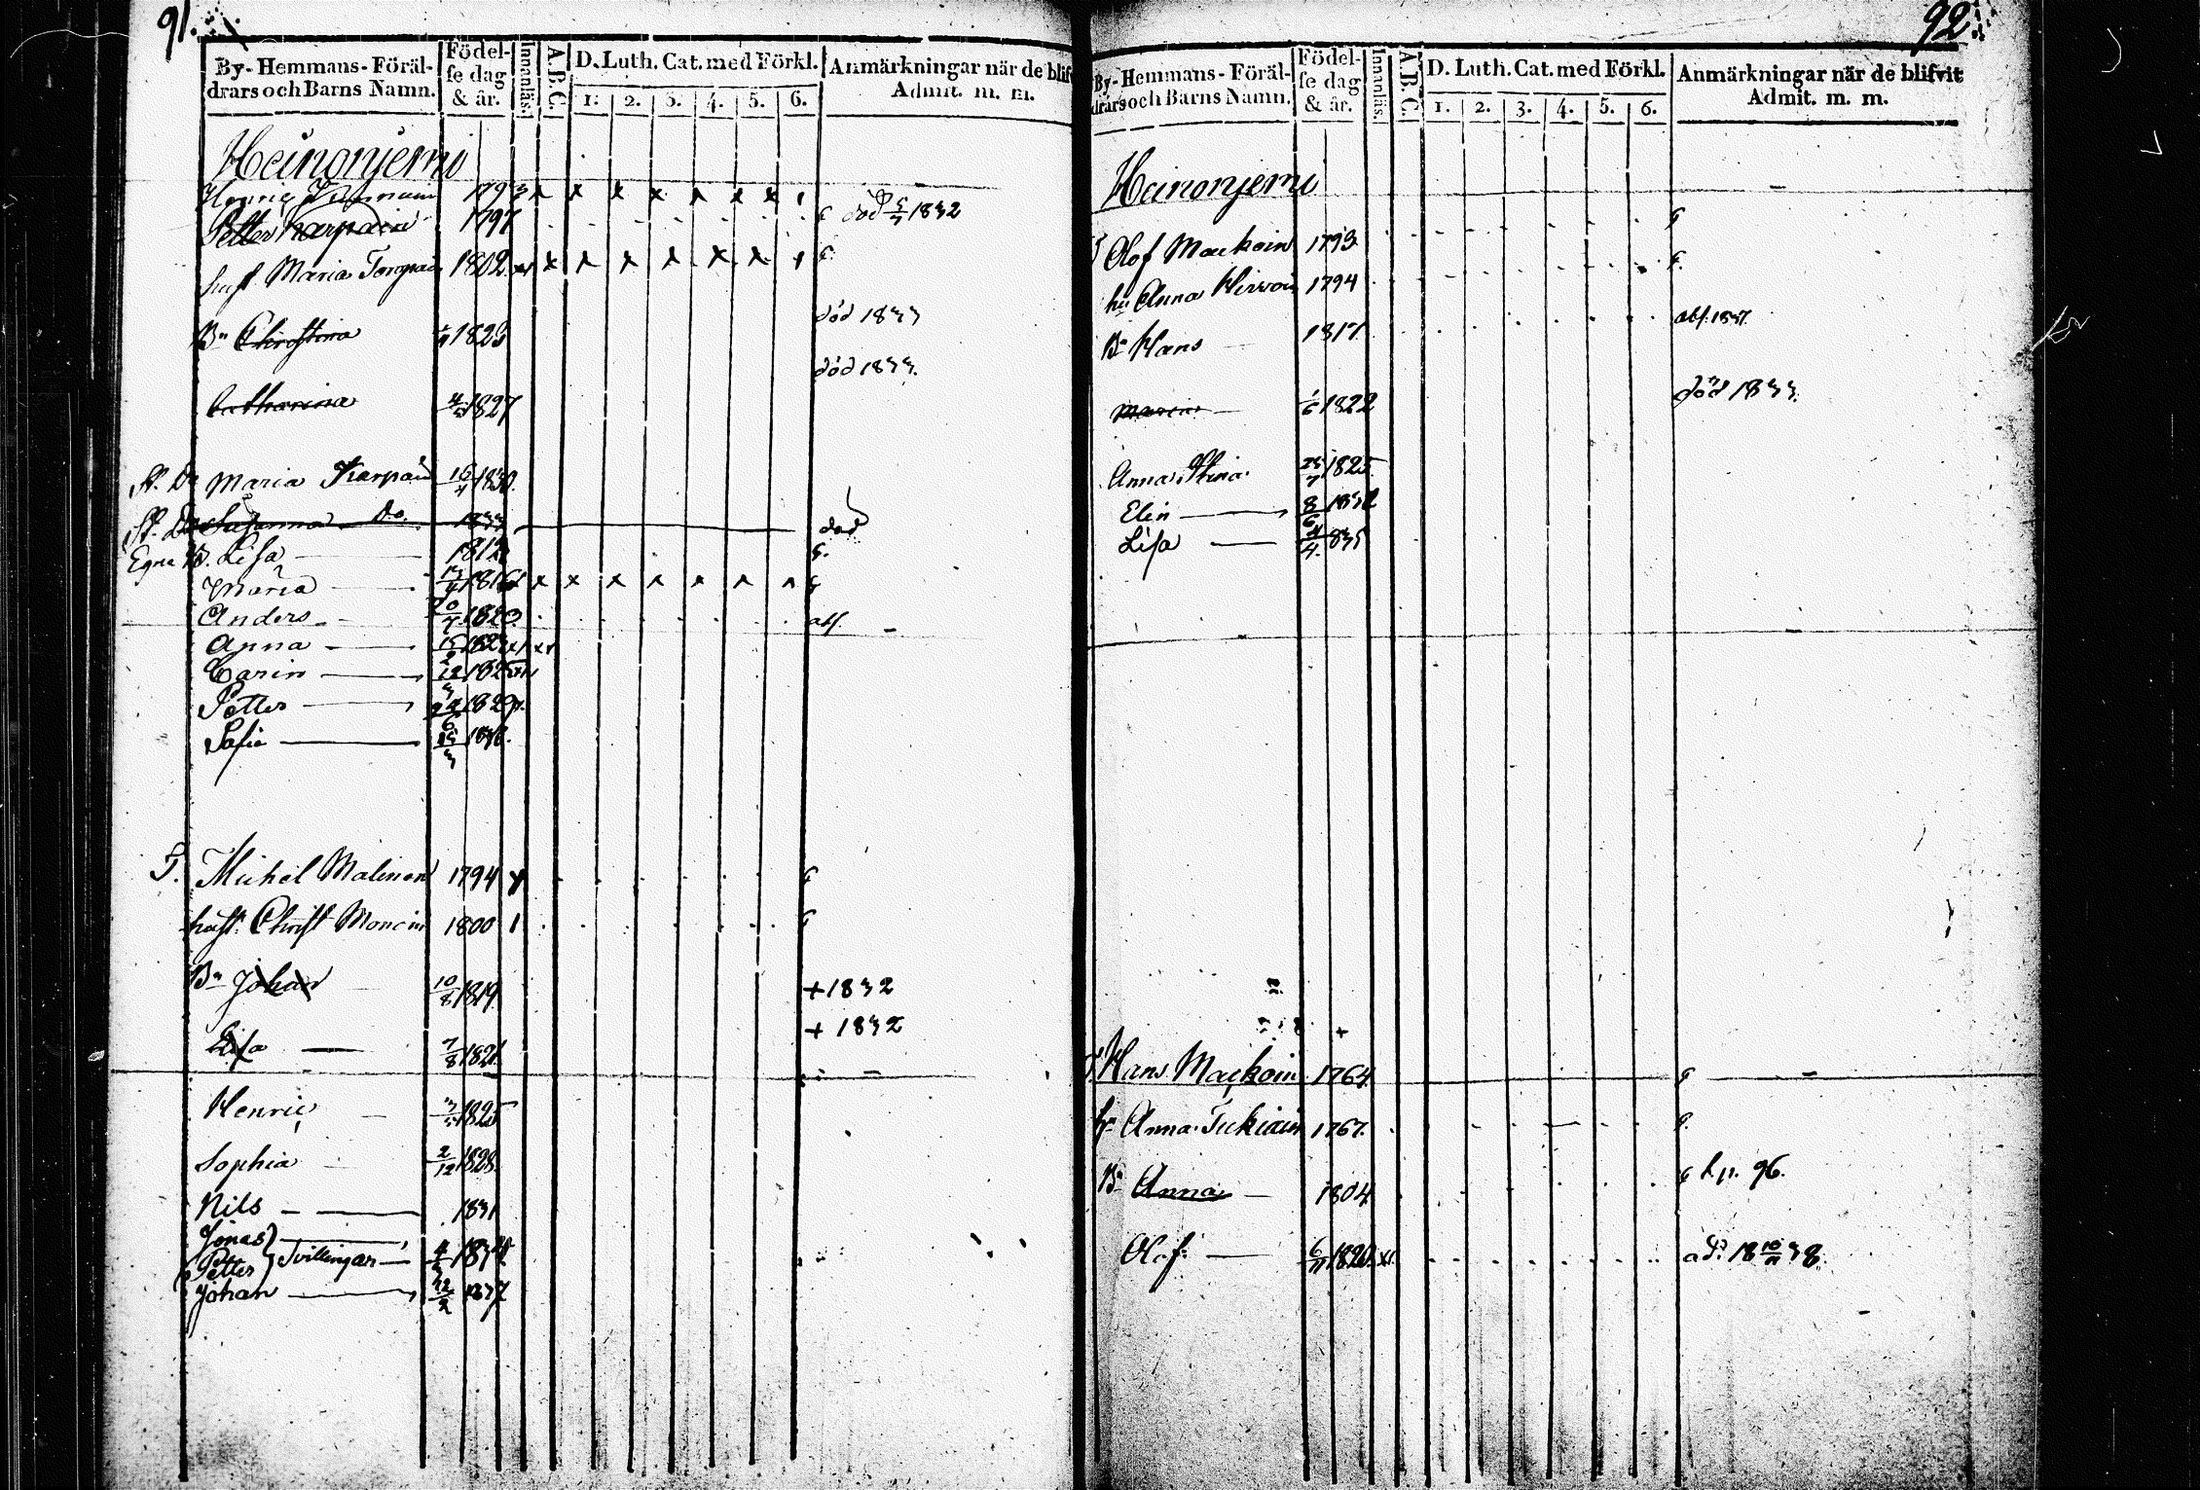 91.
By- Hemmans- Föräl-
drars och Barns Namn.
Födel-
se dag
& år.
Innanläs.
A.B.C.
D. Luth. Cat. med Förkl.
1. 2. 3. 4. 5. 6.
Anmärkningar när de blif
Admit. m. m.
Heinonjemi
Henric 1793
Petter Karpain 1797 död 5/7 1832
hust Maria 1802
Bn Christina 1823 död 1833
Catharina 1827 död 1833.
St. Dr Maria Karpain 1830
St. Dr Susanna Do. 1833 död
Egna B. Lisa 1812
Maria 1816
Anders 1820 abs.
Anna 15/2
Carin 1825
Petter 1829
Sofia
G. Michel Malinen 1794
hust. Christ Monoin 1800
Bn Johan 10/8 1819 +1832
Lisa 7/8 1821 + 1832
Henric 1825
Sophia 2/12 1828
Nils 1831
Jonas
Petter } Tvillingar 1834
Johan 1837
92.
By- Hemmans- Föräl-
drars och Barns Namn.
Födel-
se dag
& år.
Innanläs.
A.B.C.
D. Luth. Cat. med Förkl.
1. 2. 3. 4. 5. 6.
Anmärkningar när de blifvit
Admit. m. m.
Heinonjemi
Olof Mackoin 1793
hu Anna Hirvoin 1794
Bn Hans 1817 abs. 1837
Maria 1/6 1822 död 1833.
Anna Stina 1825
Elin 8/6 1832
Lisa 4/4 835
Hans Mackoin 1764
hu Anna Tukiain 1767
Bn Anna 1804 p. 96.
Olof 1820